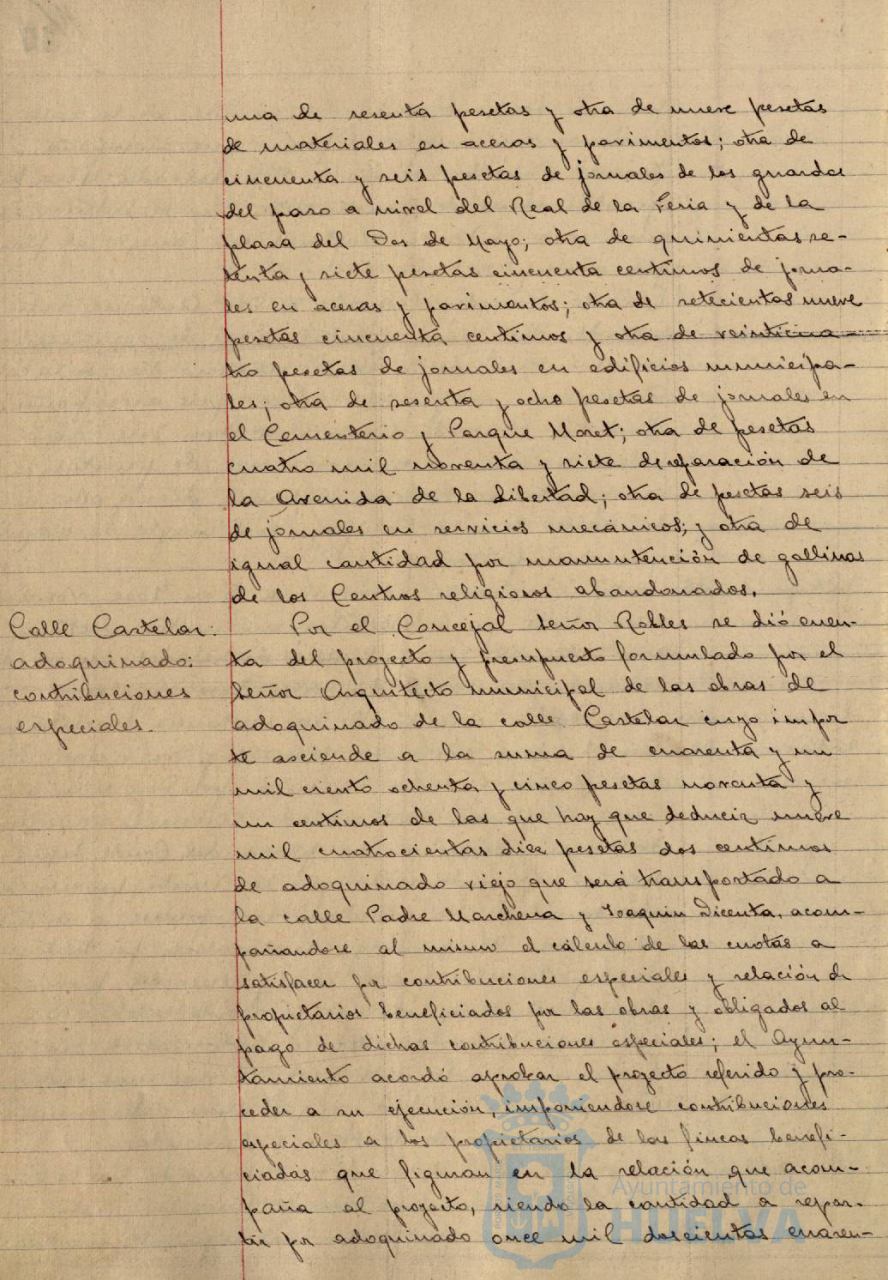 una de sesenta pesetas y otra de nueve pesetas
de materiales en aceras y pavimentos; otra de
cincuenta y seis pesetas de jornales de los guardas
del paso a nivel del Real de la Feria y de la
plaza del Dos de Mayo; otra de quinientas se-
tenta y siete pesetas cincuenta centimos de jorna-
les en aceras y pavimentos; otra de setecientas nueve
pesetas cincuenta centimos y otra de veinticua-
tro pesetas de jornales en edificios municipa-
les; otra de sesenta y ocho pesetas de jornales en
el Cementerio y Parque Moret; otra de pesetas
cuatro mil noventa y siete de reparación de
la Avenida de la Libertad; otra de pesetas seis
de jornales en servicios mecánicos; y otra de
igual cantidad por manutención de gallinas
de los Centros religiosos abandonados.
Calle Castelar:
adoquinado:
contribuciones
especiales.
Por el Concejal Señor Robles se dió cuen-
ta del proyecto y presupuesto formulado por el
Señor Arquitecto municipal de las obras de
adoquinado de la calle Castelar cuyo impor
te asciende a la suma de cuarenta y un
mil ciento ochenta y cinco pesetas noventa y
un centimos de las que hay que deducir nueve
mil cuatrocientas diez pesetas dos centimos
de adoquinado viejo que será transportado a
la calle Padre Marchena y Joaquin Dicenta, acom-
pañandose al mismo el cálculo de las cuotas a
satisfacer por contribuciones especiales y relación de
propietarios beneficiados por las obras y obligados al
pago de dichas contribuciones especiales; el Ayun-
tamiento acordó aprobar el proyecto referido y pro-
ceder a su ejecución, imponiendose contribuciones
especiales a los propietarios de las fincas benefi-
ciadas que figuran en la relación que acom-
paña al proyecto, siendo la cantidad a repar-
tir por adoquinado once mil doscientas cuaren-
Ayuntamiento de
HUELVA